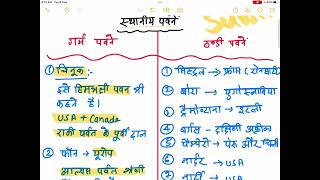 स्थानीय पवने
गर्म पवने
ठण्डी पवने
① चिनूक :-
इसे हिमभक्षी पवन भी
कहते हैं।
USA + Canada
राकी पर्वत के पूर्वी ढाल
② फॉन → यूरोप
आल्पस पर्वत श्रेणी
① मिस्ट्रल → फ्रांस
② बोरा → युगोस्लाविया
③ ट्रैमोन्टाना → इटली
④ दक्षिणी अफ्रीका
⑤ पैम्पेरो →
⑥ नार्दर → USA
⑦ नार्टी → USA